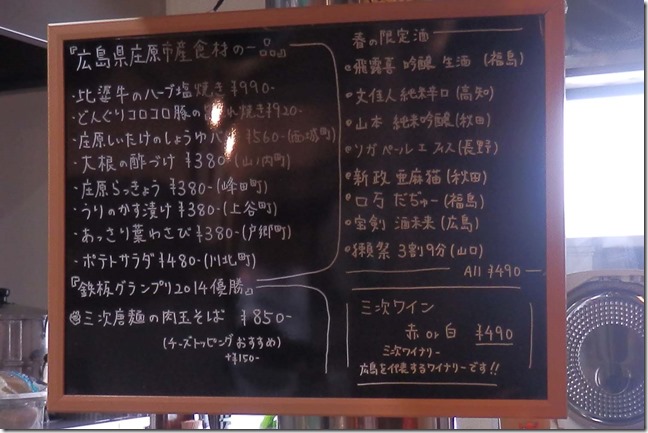 『広島県庄原市産食材の一品』
・比婆牛のハーブ塩焼き ¥990-
・どんぐりコロコロ豚の れ焼き ¥920-
・庄原しいたけのしょうゆバ ¥560-(西城町)
・大根の酢づけ ¥380-(山ノ内町)
・庄原らっきょう ¥380-(峰田町)
・うりのかす漬け ¥380-(上谷町)
・あっさり葉わさび ¥380-(戸郷町)
・ポテトサラダ ¥480-(川北町)
『鉄板グランプリ2014優勝』
三次唐麺の肉玉そば ¥850-
(チーズトッピングおすすめ)
+¥150-
春の限定酒
飛露喜 吟醸 生酒 (福島)
文佳人 純米辛口 (高知)
山本 純米吟醸 (秋田)
ソガペールエフィス (長野)
新政 亜麻猫 (秋田)
ロ万 だぢゅー (福島)
宝剣 酒未来 (広島)
獺祭 3割9分 (山口)
All ¥490-
三次ワイン
赤 or 白 ¥490
三次ワイナリー
広島を代表するワイナリーです!!